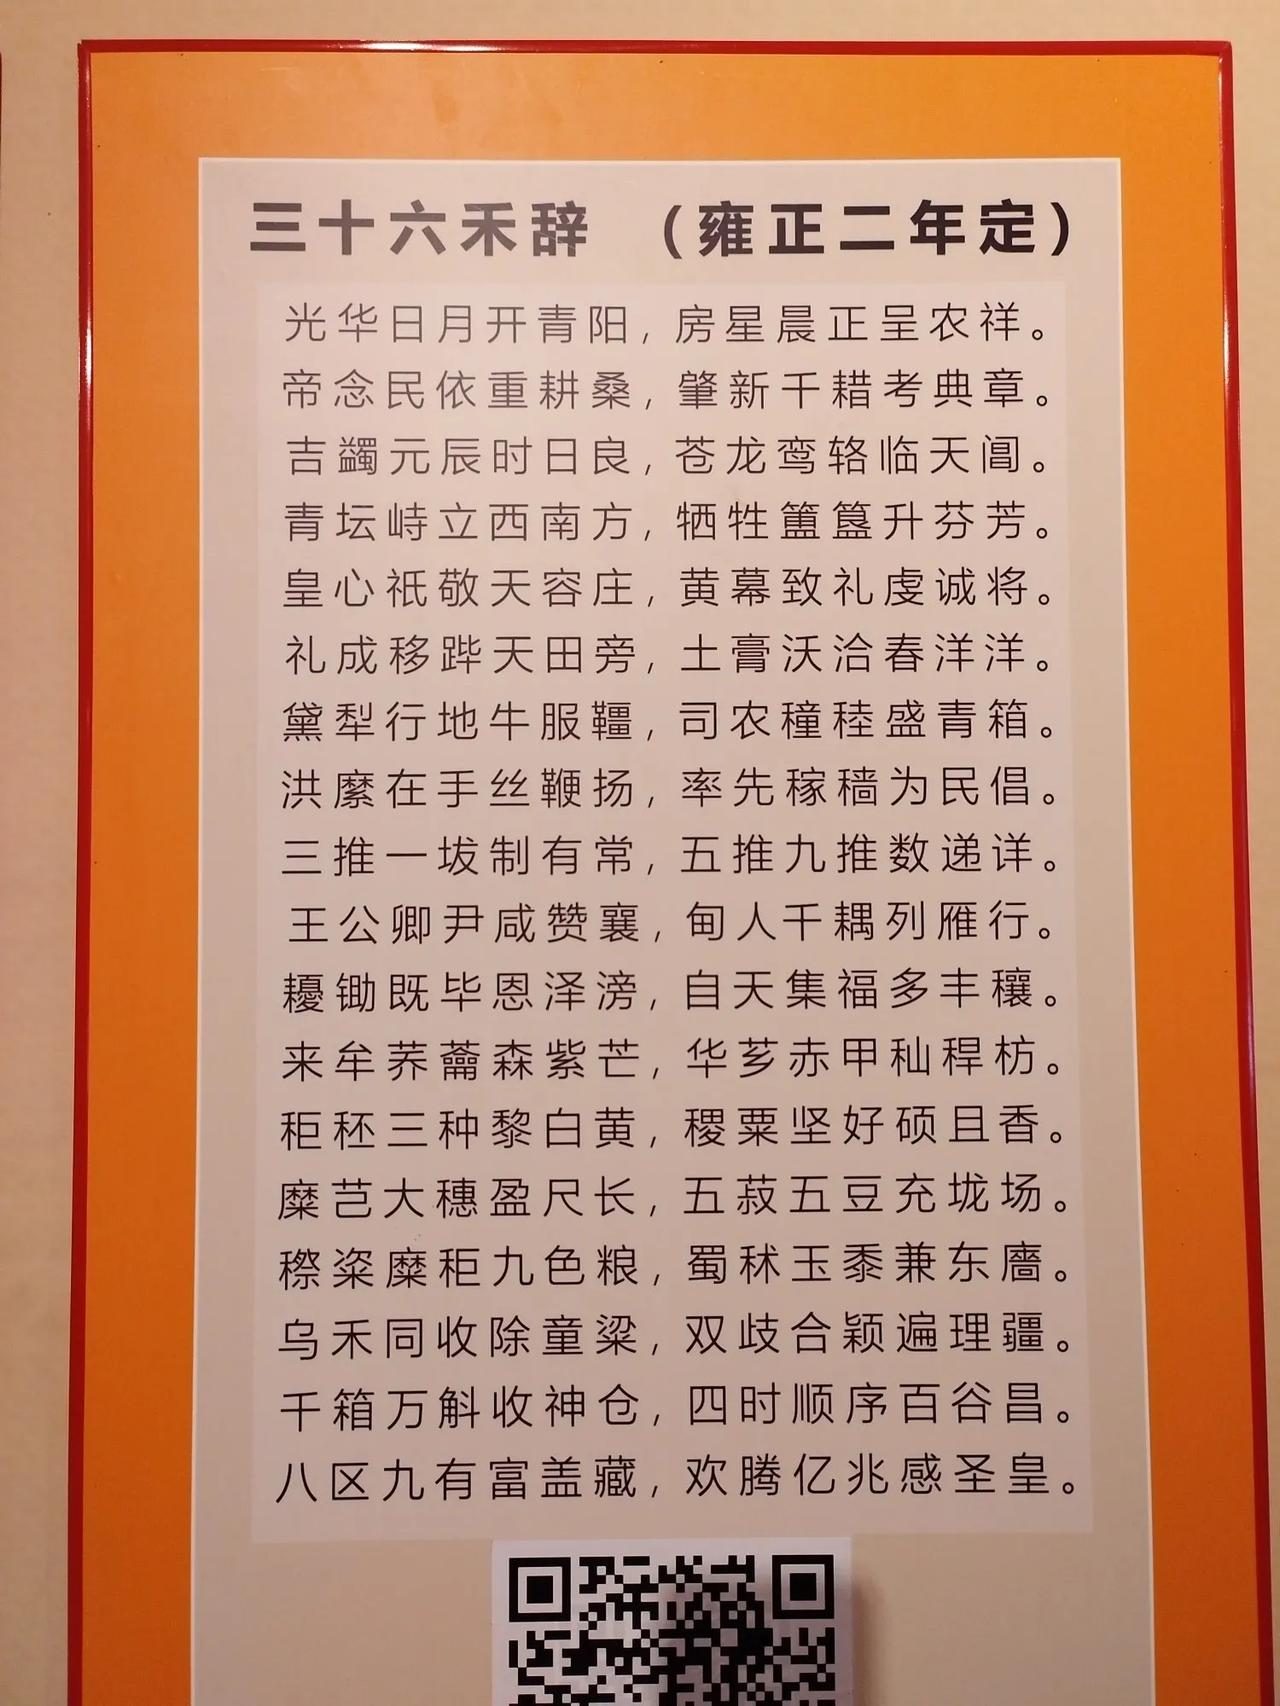 三十六禾辞 （雍正二年定）
光华日月开青阳，房星晨正呈农祥。
帝念民依重耕桑，肇新千耤考典章。
吉蠲元辰时日良，苍龙鸾辂临天阊。
青坛峙立西南方，牺牲簠簋升芬芳。
皇心祇敬天容庄，黄幕致礼虔诚将。
礼成移跸天田旁，土膏沃洽春洋洋。
黛犁行地牛服韁，司农穜稑盛青箱。
洪縻在手丝鞭扬，率先稼穑为民倡。
三推一坺制有常，五推九推数递详。
王公卿尹咸赞襄，甸人千耦列雁行。
耰锄既毕恩泽滂，自天集福多丰穰。
来牟荞蘥森紫芒，华芗赤甲秈稈枋。
秬秠三种黎白黄，稷粟坚好硕且香。
糜芑大穗盈尺长，五菽五豆充垅场。
穄粢糜秬九色粮，蜀秫玉黍兼东廧。
乌禾同收除童粱，双歧合颖遍理疆。
千箱万斛收神仓，四时顺序百谷昌。
八区九有富盖藏，欢腾亿兆感圣皇。